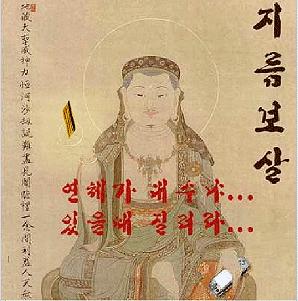 지름보살
연체가 대수냐...
있을때 질러라...
地藏大聖威神力恒河沙劫說難盡見聞瞻禮一念間利益人天無